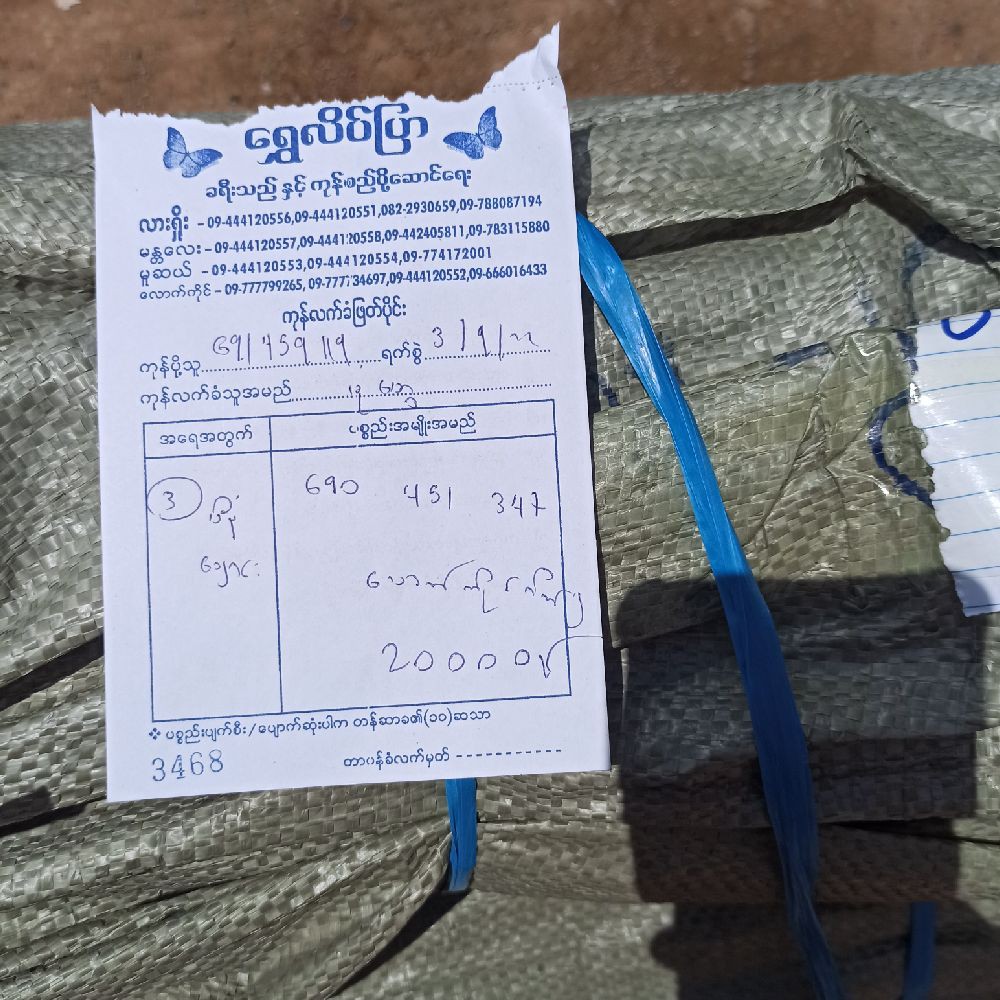 ရွှေလိပ်ပြာ
ခရီးသည် နှင့် ကုန်စည်ပို့ဆောင်ရေး
လားရှိုး - 09-444120556,09-444120551,082-2930659,09-788087194
မန္တလေး - 09-444120557,09-444120558,09-442405811,09-783115880
မူဆယ် - 09-444120553,09-444120554,09-774172001
လောက်ကိုင် - 09-777799265, 09-777734697,09-444120552,09-666016433
ကုန်လက်ခံဖြတ်ပိုင်း
ကုန်ပို့သူ ရက်စွဲ
ကုန်လက်ခံသူအမည်
အရေအတွက် ပစ္စည်းအမျိုးအမည်
3 690 451 347
20000
❖ ပစ္စည်းပျက်စီး/ပျောက်ဆုံးပါက တန်ဆာခ၏(၁၀)ဆသာ
3468 တာဝန်ခံလက်မှတ် -----------